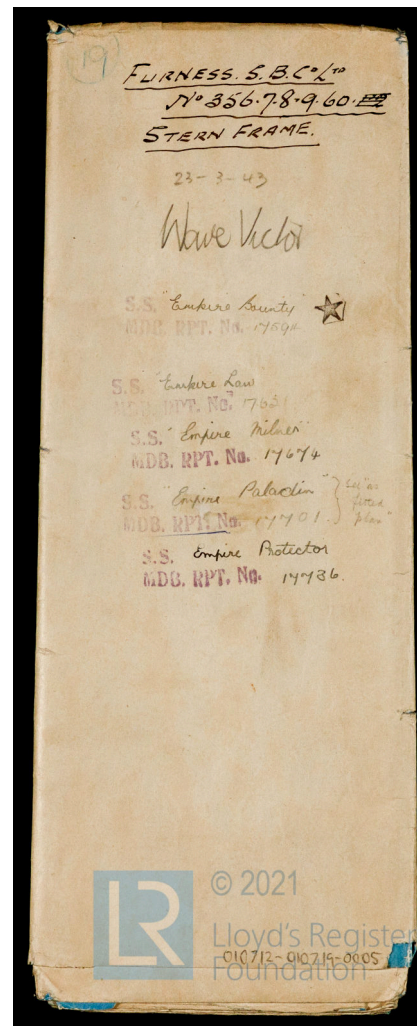 19
FURNESS. S.B. Co LTD
No 356.7.8.9.60.
STERN FRAME.
23-3-43
Wave Victor
S.S. "Empire Bounty"
MDB. RPT. No.
S.S. "Empire Law"
MDB. RPT. No. 17631
S.S. "Empire Milner"
MDB. RPT. No. 17674
S.S. "Empire Paladin"
MDB. RPT. No. 17701
fitted
plan"
S.S. Empire Protector
MDB. RPT. No. 17736.
LR
© 2021
Lloyd's Register
Foundation
010712-010719-0005